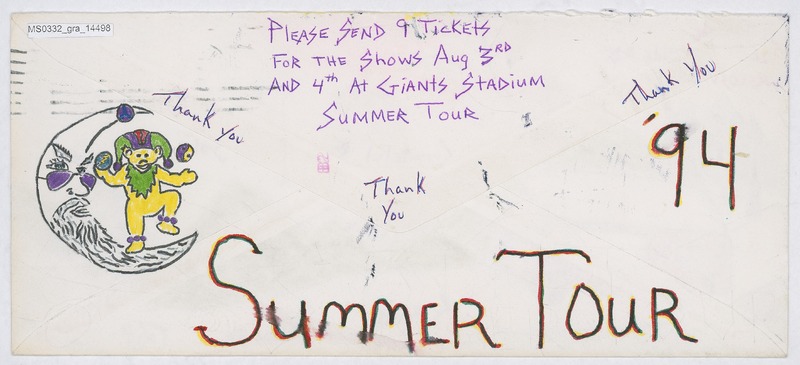 MS0332_gra_14498
PLEASE SEND 9 TICKETS
FOR THE SHOWS AUG 3RD
AND 4th AT GIANTS STADIUM
SUMMER TOUR
Thank You
Thank You
Thank
You
'94
SUMMER TOUR